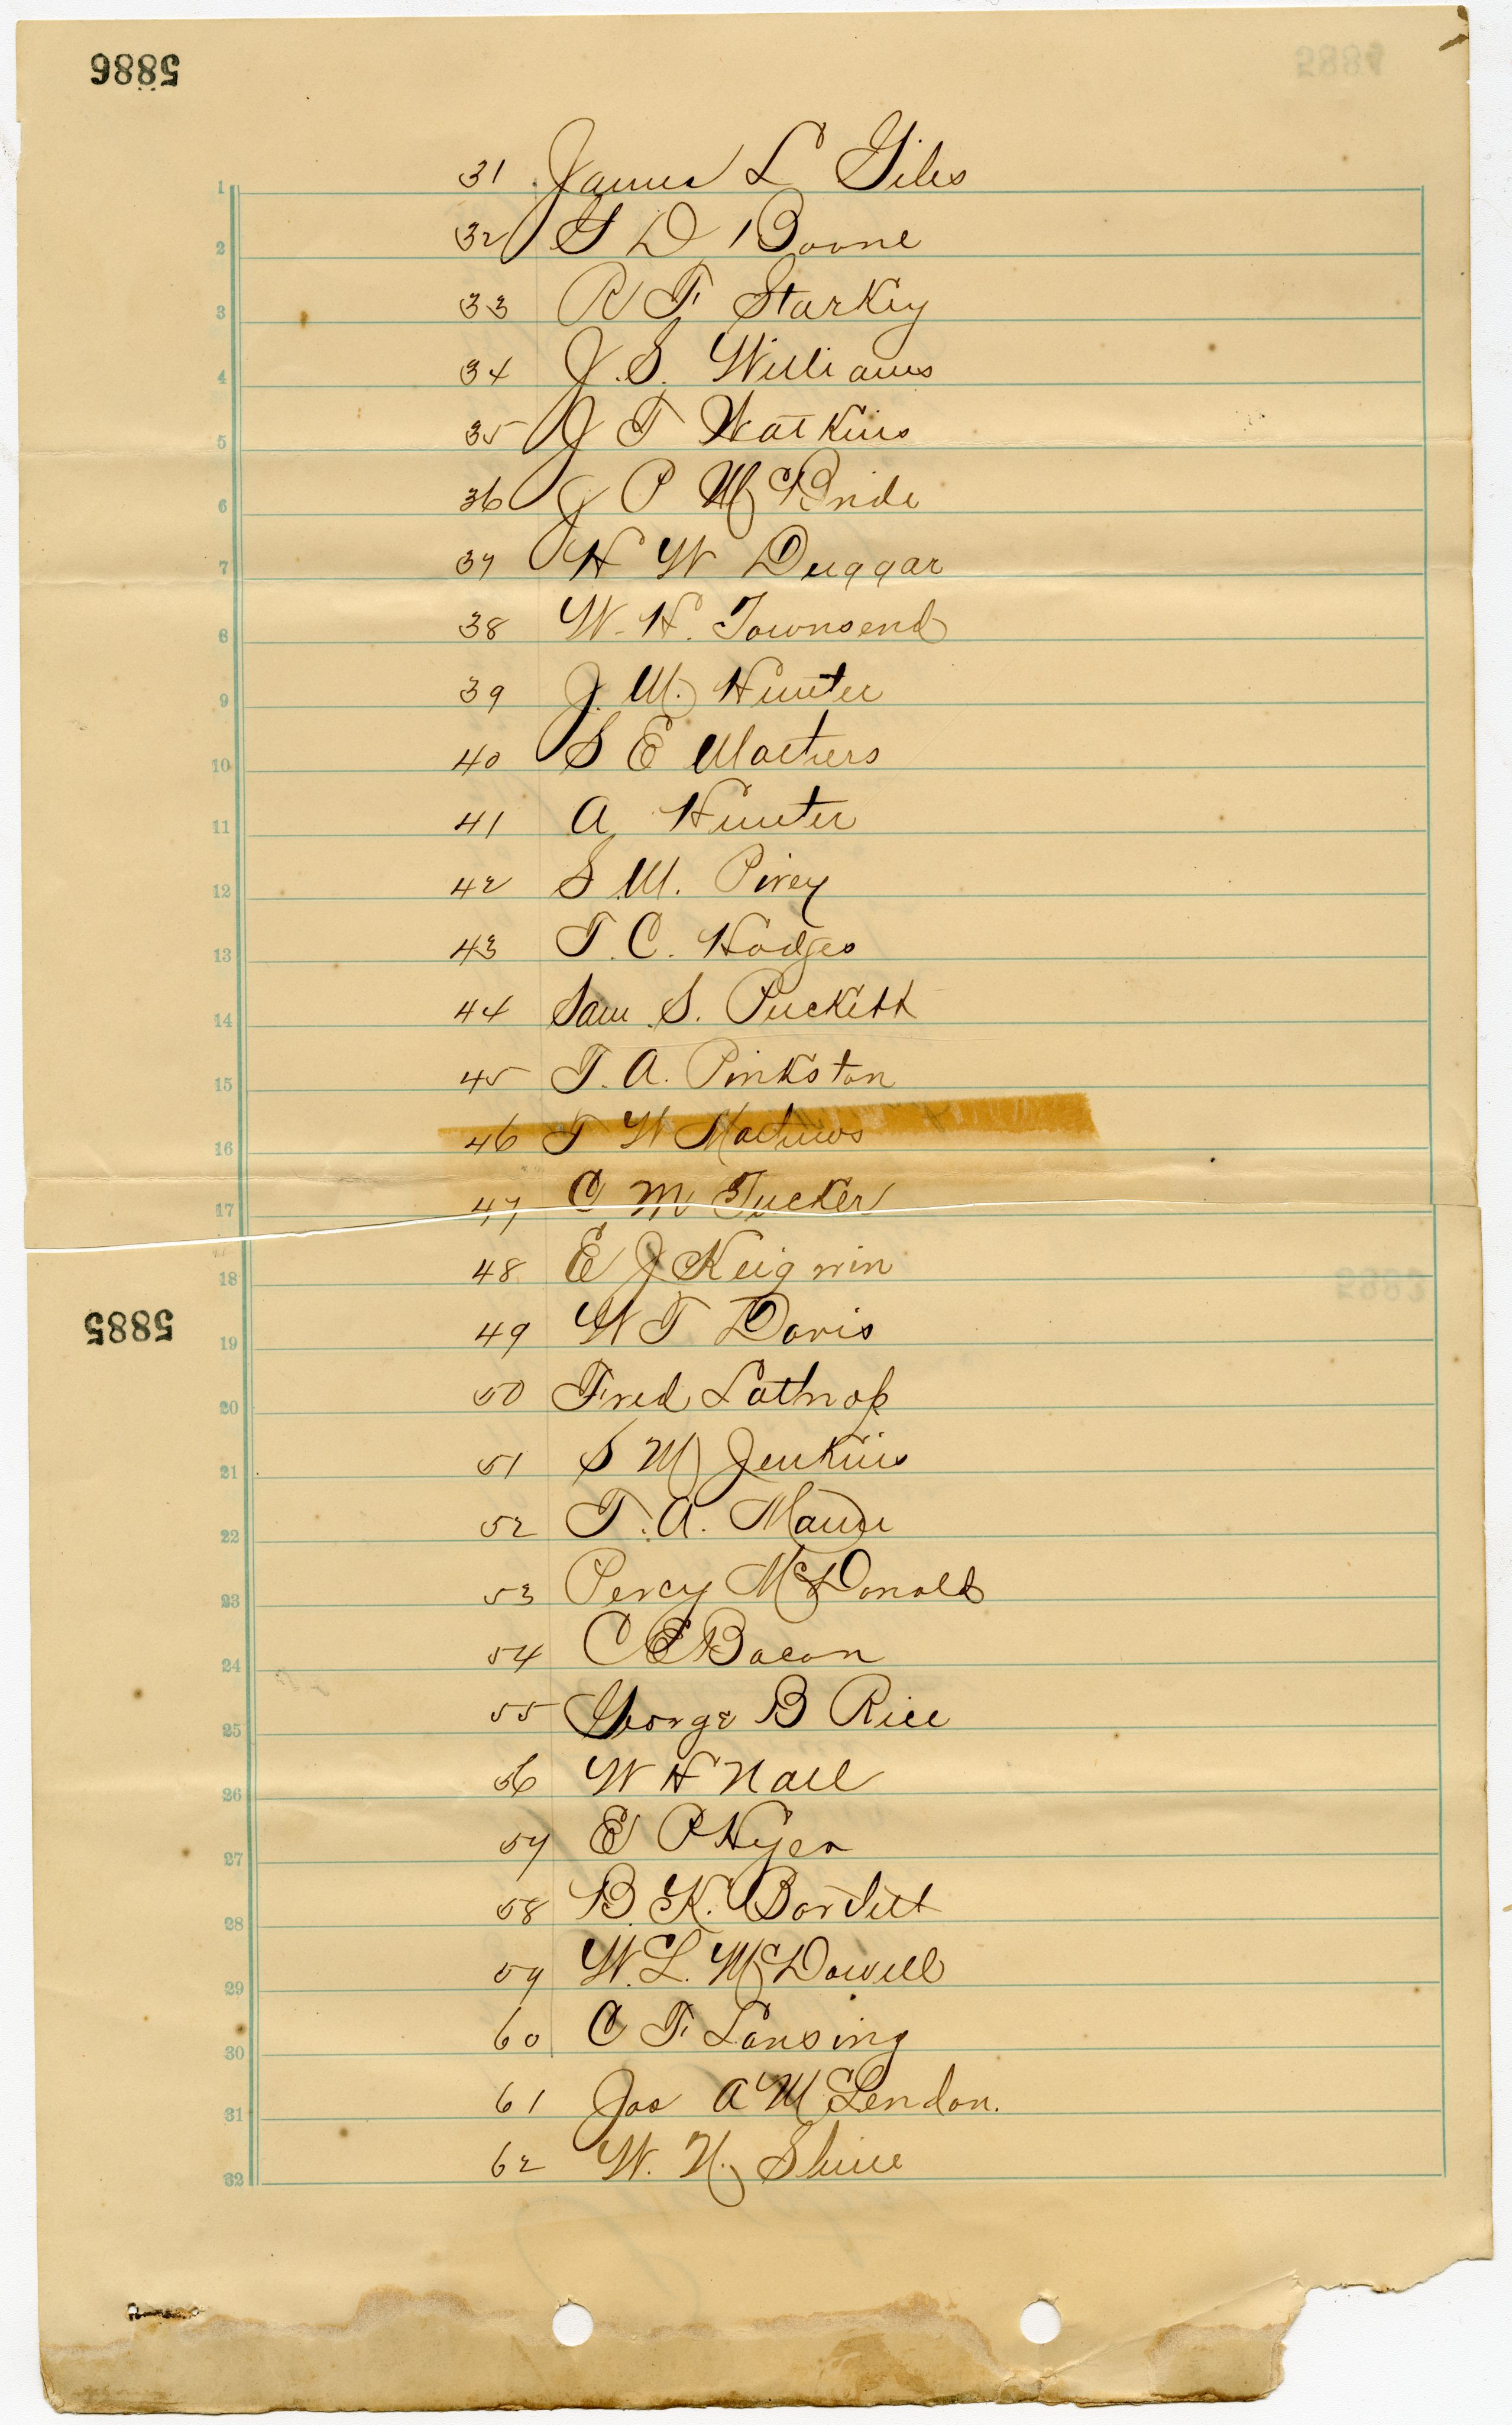 5886
31 James L Giles
32 S D Boone
33 R F Starkey
34 J. S. Williams
35 J T Watkins
36 J P McBride
37 H W Duggar
38 W. H. Townsend
39 J. M. Hunter
40 S E Mathers
41 A Hunter
42 S. M. Pirey
43 T. C. Hodges
44 Sam S. Puckett
45 T. A. Pinkston
46 T W Mathews
47 C M Tucker
48 E J Keigwin
5885
49 W T Davis
50 Fred Lathrop
51 S M Jenkins
52 T. A. Mann
53 Percy McDonald
54 C E Bacon
55 George B Rice
56 W H Nall
57 E P Hyer
58 B. K. Bartlett
59 W. L. McDowell
60 C F Lansing
61 Jas A McLendon.
62 W. N. Shine
1
2
3
4
5
6
7
8
9
10
11
12
13
14
15
16
17
18
19
20
21
22
23
24
25
26
27
28
29
30
31
32